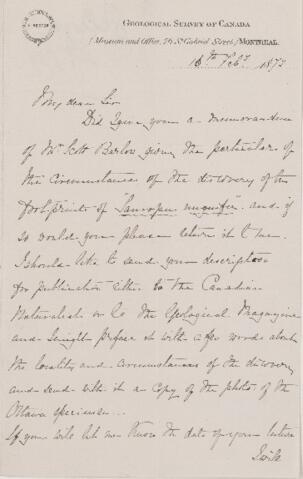 GEOLOGICAL SURVEY OF CANADA
(Museum and Office, 76 St Gabriel Street) MONTREAL.
16th Feby 1873
My dear Sir
Did I give you a memorandum
of Mr Scott Barlow giving the particulars of
the circumstances of the discovery of the
footprints of "Sauropus unguifer" and if
so would you please return it to me
I should like to send your description
for publication either to the Canadian
Naturalist or to the Geological Magazine
and I might preface it with a few words about
the locality and circumstances of the discovery
and send with it a copy of the photo of the
Ottawa specimen...
If you will let me know the date of your lecture
I will